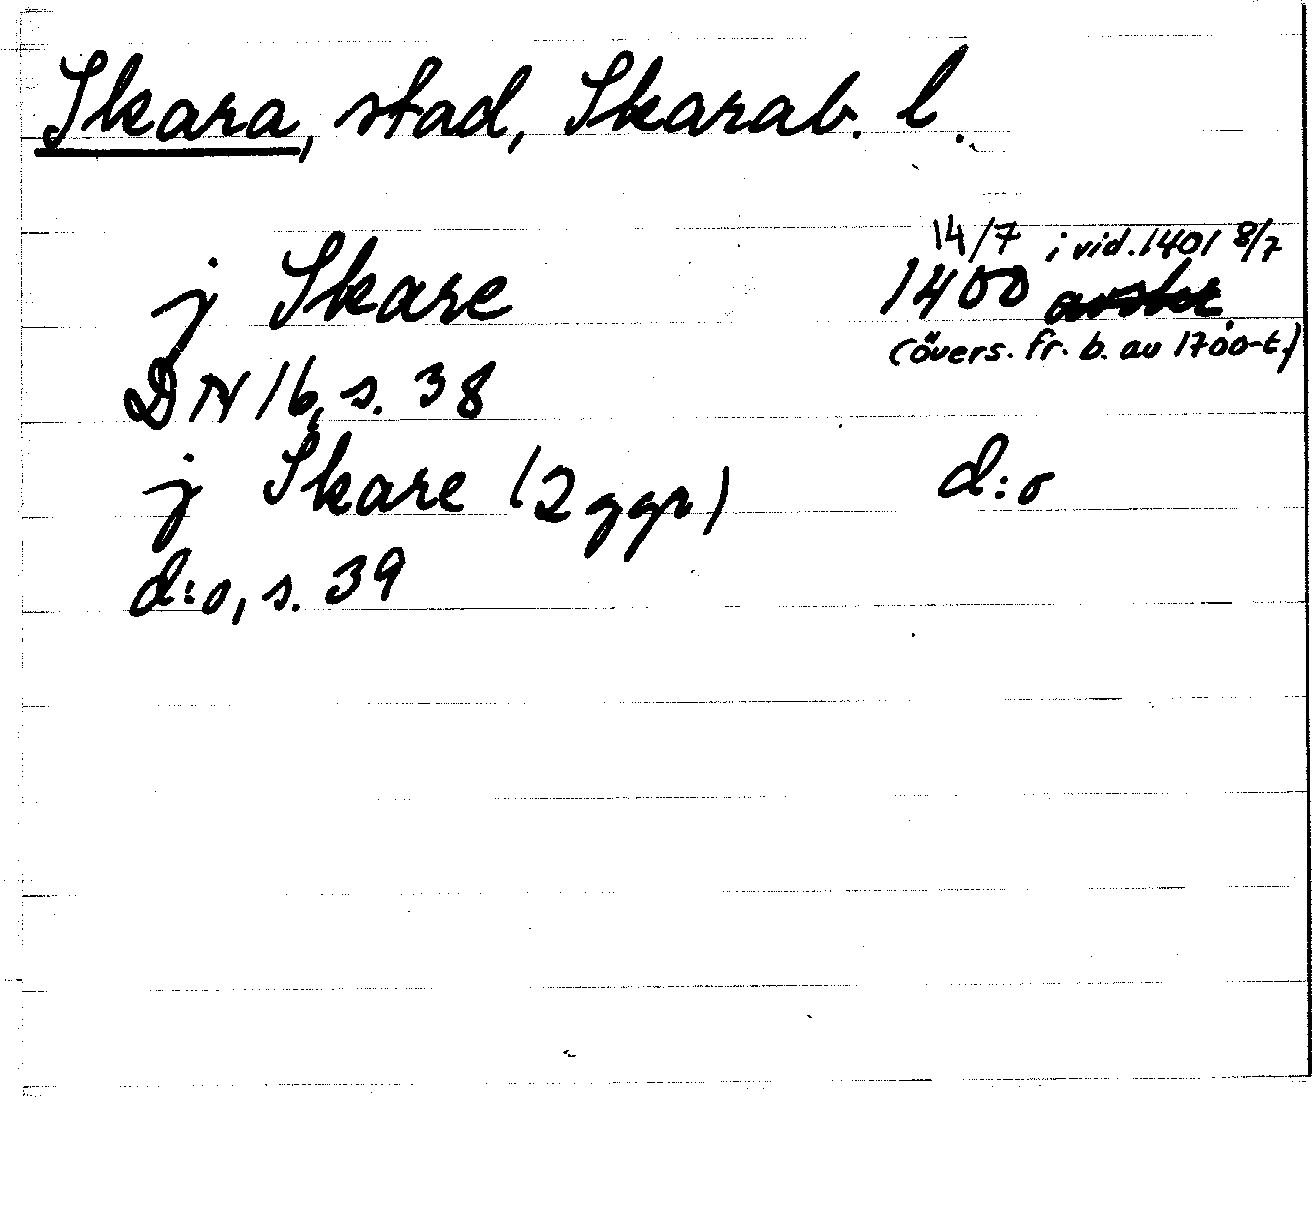 Skara, stad, Skarab. l.
14/7 i vid. 1401 8/7
j Skare 1400
(övers. fr. b. av 1700-t.)
DN 16, s. 38
j Skare (2 ggr) d:o
d:o, s. 39